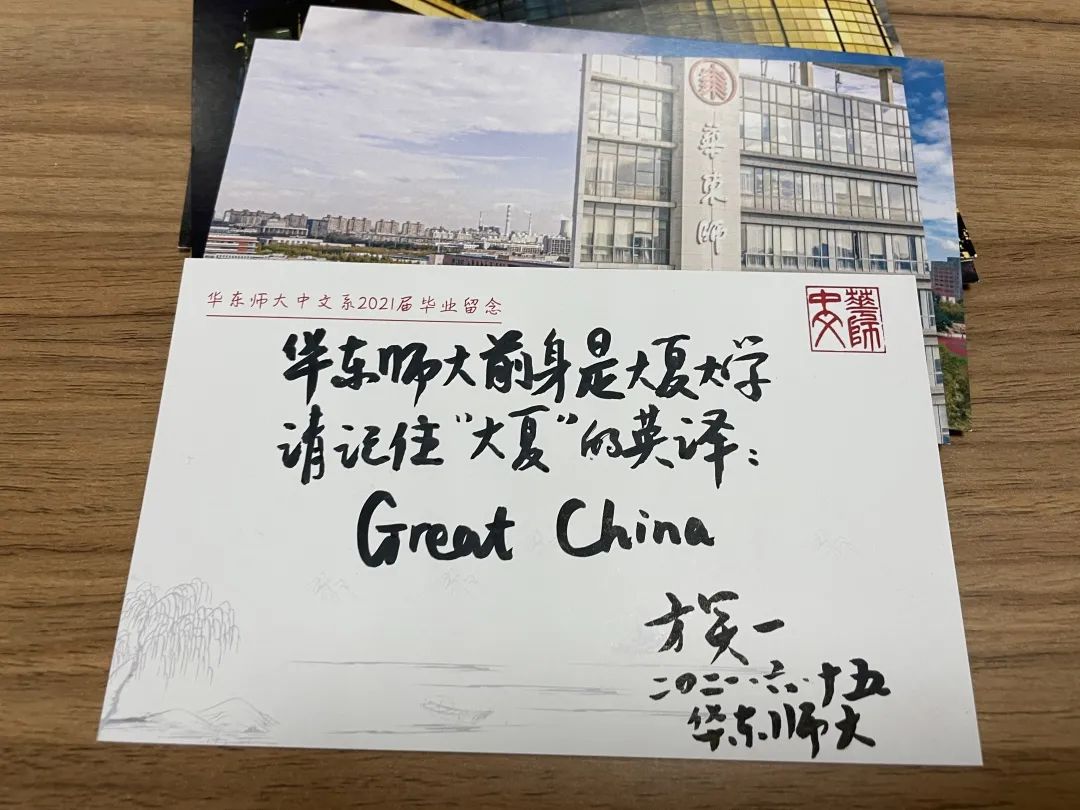 華東師
华东师大中文系2021届毕业留念
華師
中文
华东师大前身是大夏大学
请记住“大夏”的英译：
Great China
方笑一
二〇二一.六.十五
华东师大